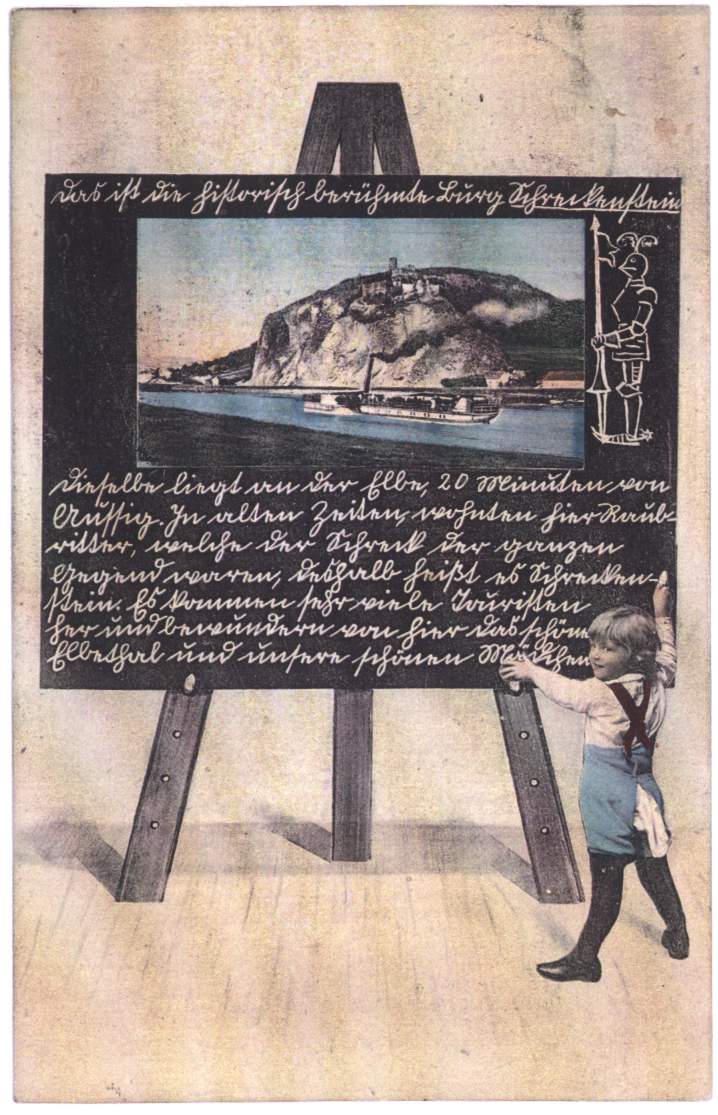 Das ist die historisch berühmte Burg Schreckenstein
Dieselbe liegt an der Elbe, 20 Minuten von
Aussig. In alten Zeiten, wohnten hier Raub-
ritter, welche der Schreck der ganzen
Gegend waren, deshalb heißt es Schrecken-
stein. Es kommen sehr viele Touristen
her und bewundern von hier das schöne
Elbethal und unsere schönen Mädchen